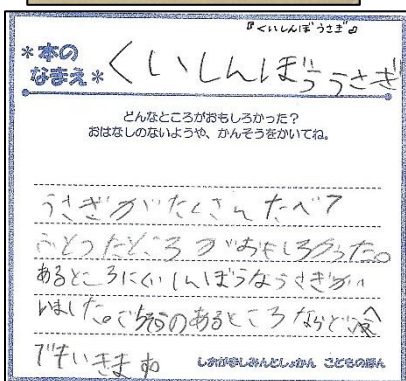 『くいしんぼうさぎ』
*本の
なまえ*
くいしんぼううさぎ
どんなところがおもしろかった?
おはなしのないようや、かんそうをかいてね。
うさぎがたくさんたべて
ふとったところがおもしろかった。
あるところにくいしんぼうなうさぎが
いました。ごちそうのあるところならどこへ
でもいきます
しおがましみんとしょかん こどものほん